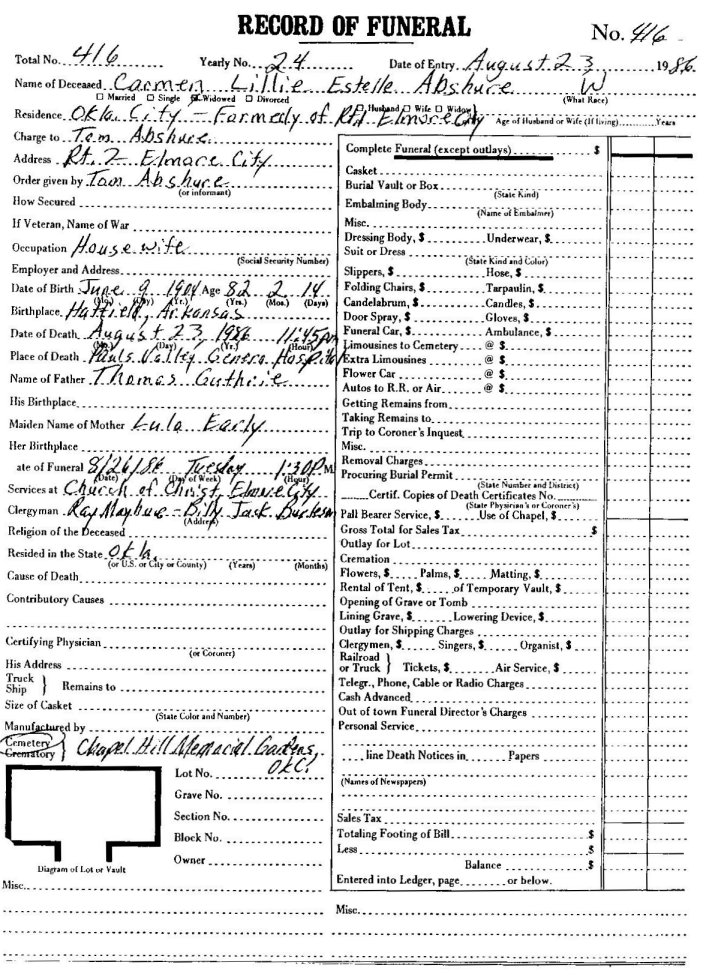 RECORD OF FUNERAL
No. 416
Total No. 416 Yearly No. 24 Date of Entry August 23 1986
Name of Deceased Carmen Lillie Estelle Abshure W
Married Single Widowed Divorced (What Race)
Residence Okla. City - Formerly of Rt 1 Elmore City Husband Wife Widow Age of Husband or Wife (If living) Years
Charge to Tom Abshure
Address Rt. 2 Elmore City
Order given by Tom Abshure
(or informant)
How Secured
If Veteran, Name of War
Occupation Housewife
(Social Security Number)
Employer and Address
Date of Birth June 9 1904 Age 82 2 14
(Mo.) (Day) (Yr.) (Yrs.) (Mos.) (Days)
Birthplace Hatfield, Arkansas
Date of Death August 23 1986 11:45pm
(Mo.) (Day) (Yr.) (Hour)
Place of Death Pauls Valley General Hospital
Name of Father Thomas Guthrie
His Birthplace
Maiden Name of Mother Lula Early
Her Birthplace
ate of Funeral 8/26/86 Tuesday 1:30P M
(Date) (Day of Week) (Hour)
Services at Church of Christ, Elmore City
Clergyman Ray Mayhue - Billy Jack Burleson
(Address)
Religion of the Deceased
Resided in the State Okla.
(or U.S. or City or County) (Years) (Months)
Cause of Death
Contributory Causes
Certifying Physician
(or Coroner)
His Address
Truck
Ship } Remains to
Size of Casket
(State Color and Number)
Manufactured by
Cemetery
Crematory } Chapel Hill Memorial Gardens, OKC!
Lot No.
Grave No.
Section No.
Block No.
Owner
Diagram of Lot or Vault
Misc.
Complete Funeral (except outlays) $
Casket
Burial Vault or Box
(State Kind)
Embalming Body
(Name of Embalmer)
Misc.
Dressing Body, $ Underwear, $
Suit or Dress
(State Kind and Color)
Slippers, $ Hose, $
Folding Chairs, $ Tarpaulin, $
Candelabrum, $ Candles, $
Door Spray, $ Gloves, $
Funeral Car, $ Ambulance, $
Limousines to Cemetery @ $
Extra Limousines @ $
Flower Car @ $
Autos to R.R. or Air @ $
Getting Remains from
Taking Remains to
Trip to Coroner's Inquest
Misc.
Removal Charges
Procuring Burial Permit
(State Number and District)
Certif. Copies of Death Certificates No.
(State Physician's or Coroner's)
Pall Bearer Service, $ Use of Chapel, $
Gross Total for Sales Tax $
Outlay for Lot
Cremation
Flowers, $ Palms, $ Matting, $
Rental of Tent, $ of Temporary Vault, $
Opening of Grave or Tomb
Lining Grave, $ Lowering Device, $
Outlay for Shipping Charges
Clergymen, $ Singers, $ Organist, $
Railroad
or Truck } Tickets, $ Air Service, $
Telegr., Phone, Cable or Radio Charges
Cash Advanced
Out of town Funeral Director's Charges
Personal Service
line Death Notices in Papers
(Names of Newspapers)
Sales Tax
Totaling Footing of Bill $
Less $
Balance $
Entered into Ledger, page or below.
Misc.